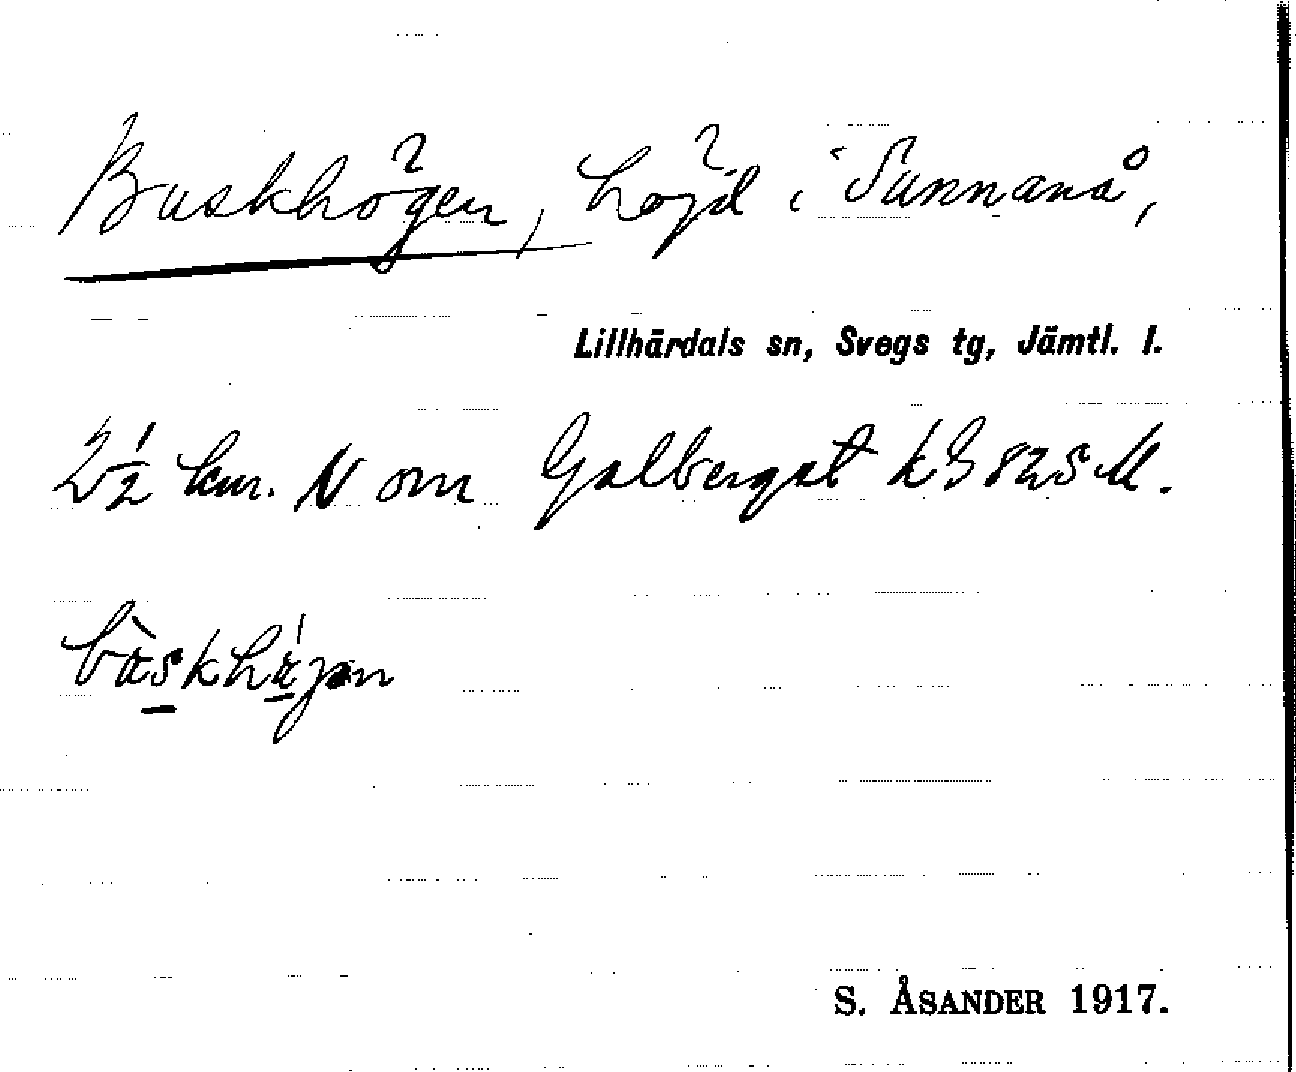 Buskhögen, höjd i Sunnanå,
Lillhärdals sn, Svegs tg, Jämtl. l.
2½ km. N om Galberget k 3825 M.
S. ÅSANDER 1917.